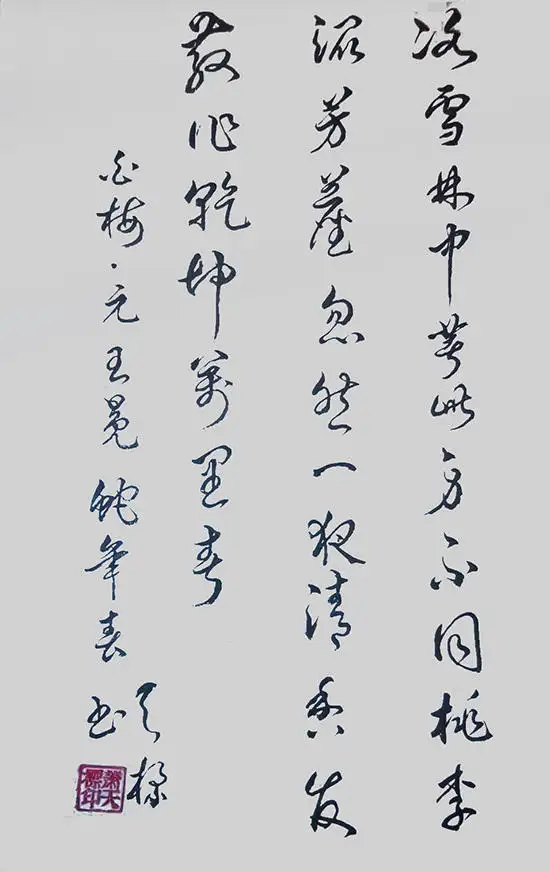 冰雪林中著此身不同桃李
混芳塵忽然一夜清香发
散作乾坤萬里春
白梅·元王冕蛇年春
天標
书
蕭天
標印